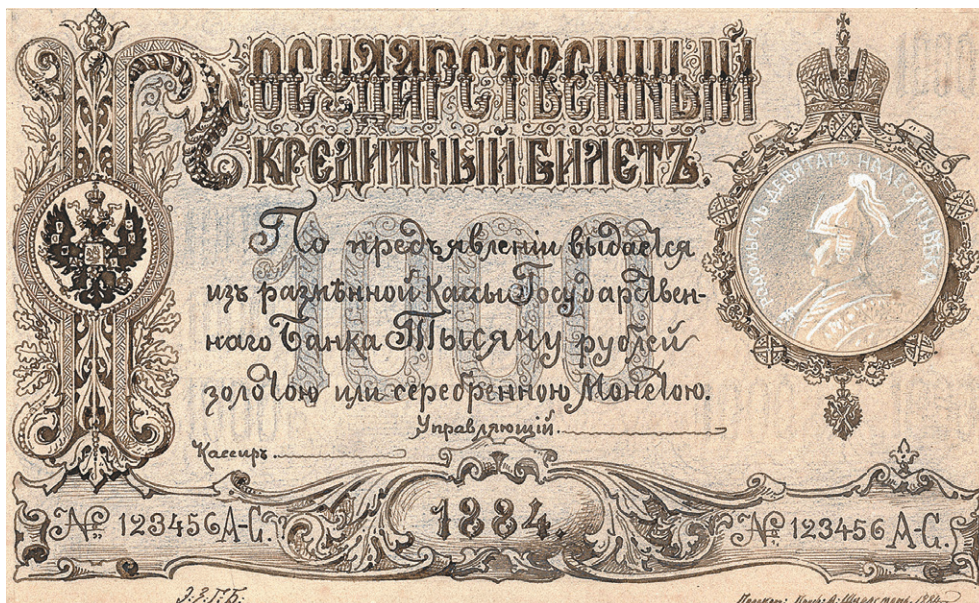 Государственный
кредитный билетъ.
1000
По предъявленіи выдается
изъ размѣнной Кассы Государствен-
наго Банка Тысячу рублей
золотою или серебренною Монетою.
Управляющій
Кассиръ
Родомыслъ девятаго на десять века
№ 123456 А-С. 1884. № 123456 А-С.
Э.З.Г.Б.
1884